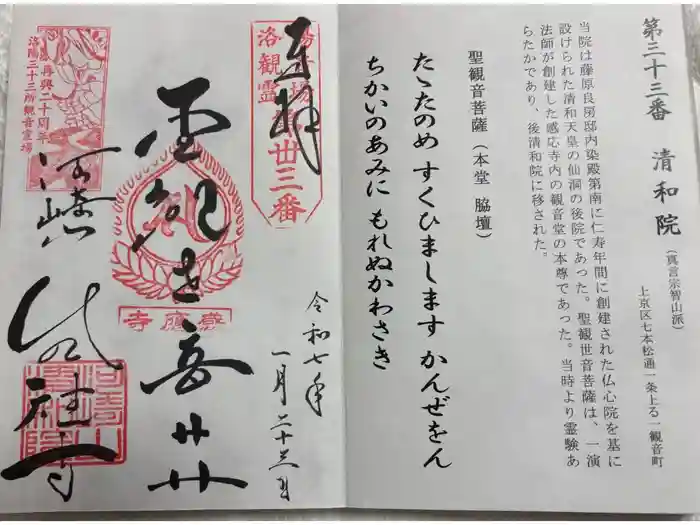 第三十三番　清和院
（真言宗智山派）
上京区七本松通一条上る一観音町
当院は藤原良房邸内染殿第南に仁寿年間に創建された仏心院を基に
設けられた清和天皇の仙洞の後院であった。聖観世音菩薩は、一演
法師が創建した感応寺内の観音堂の本尊であった。当時より霊験あ
らたかであり、後清和院に移された。
聖観音菩薩（本堂　脇壇）
たゝたのめ　すくひまします　かんぜをん
ちかいのあみに　もれぬかわさき
奉拝
洛陽
観音
霊場
第卅三番
令和七年
一月二十三日
聖観世音菩薩
感應寺
再興二十周年
洛陽三十三所観音霊場
河崎
感應寺